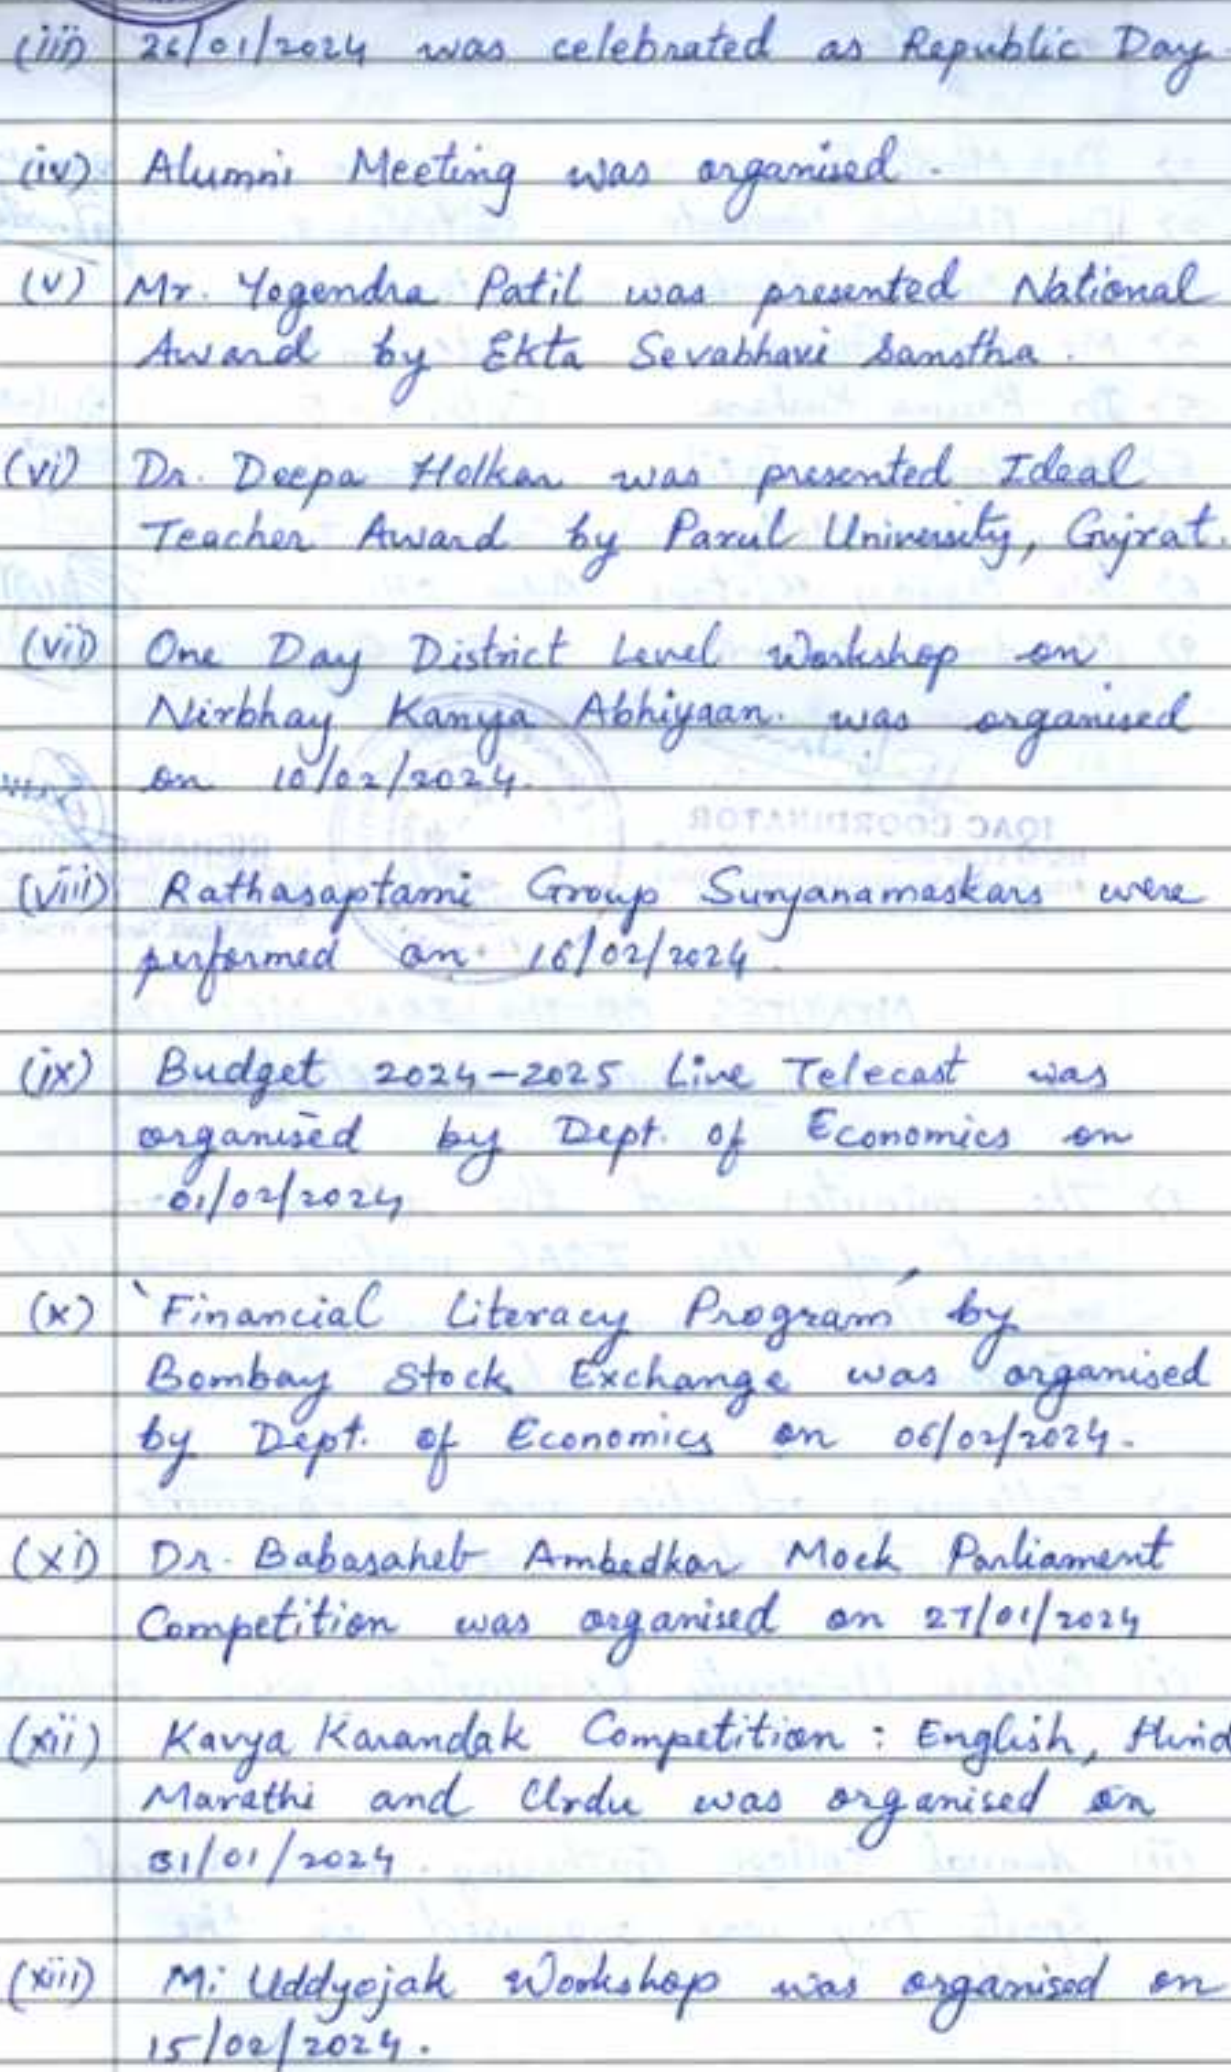 (iii) 26/01/2024 was celebrated as Republic Day.
(iv) Alumni Meeting was organised.
(v) Mr. Yogendra Patil was presented National
Award by Ekta Sevabhavi Sanstha.
(vi) Dr. Deepa Holkar was presented Ideal
Teacher Award by Parul University, Gujrat.
(vii) One Day District Level Workshop on
Nirbhay Kanya Abhiyaan was organised
on 10/02/2024.
IQAC COORDINATOR
(viii) Rathasaptami Group Suryanamaskars were
performed on 16/02/2024.
(ix) Budget 2024-2025 Live Telecast was
organised by Dept. of Economics on
01/02/2024
(x) 'Financial Literacy Program' by
Bombay Stock Exchange was organised
by Dept. of Economics on 06/02/2024.
(xi) Dr. Babasaheb Ambedkar Mock Parliament
Competition was organised on 27/01/2024
(xii) Kavya Karandak Competition : English, Hind
Marathi and Urdu was organised on
31/01/2024
(xiii) Mi Uddyojak Workshop was organised on
15/02/2024.